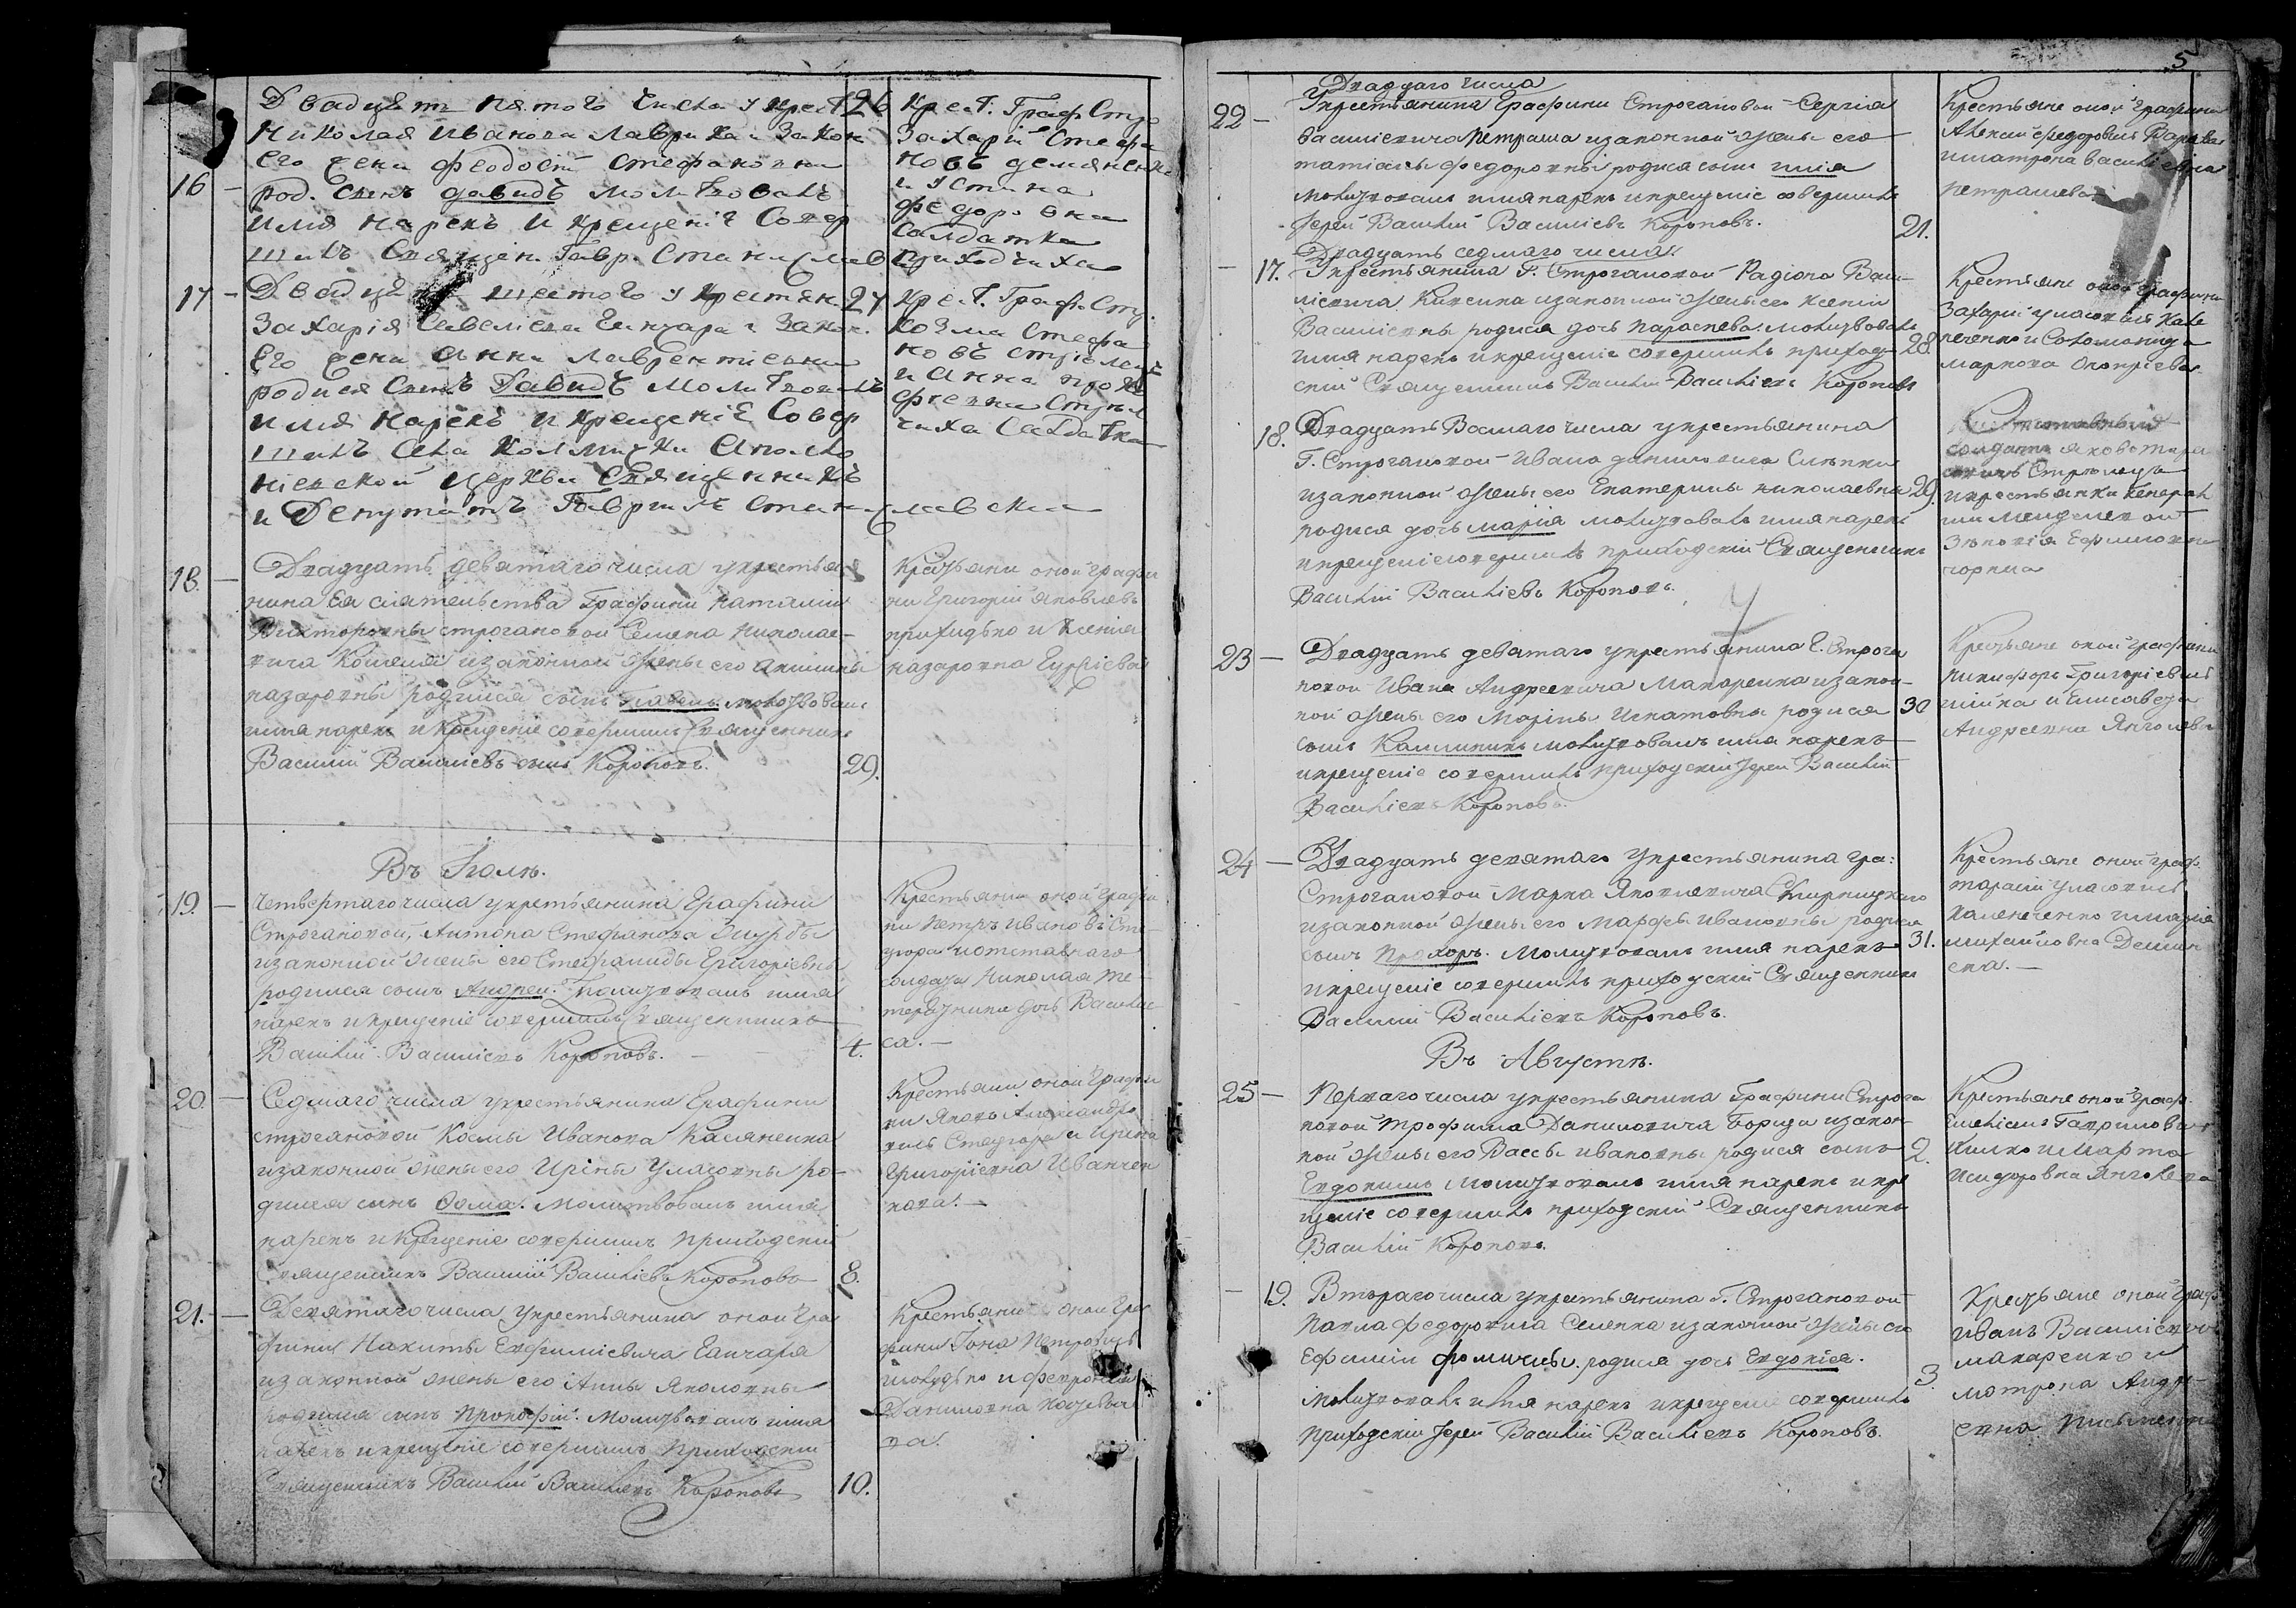 Двадцять пятого числа у крест. 26
Николая Иванова Лаврика и закон
его жени Феодосіи Стефановни
16 — род. синъ Давидъ молитвовалъ
имя нарекъ и крещеніе совер
шилъ Священ. Гавр. Станиславс
Крест. Граф. Стро
Захарій Стефа
новъ Демяненко
и Устина
Федоровна
Салдатка
Приходчиха
17 — Двадцять шестого у крестян. 27
Захарія Савеліева Ганчара и закон.
его жени Анни Лаврентіевни
родися синъ Давидъ молитвовалъ
имя нарекъ и крещеніе совер
шилъ села Колмички Аполло
ніевской церкви Священникъ
и Депутатъ Гавриилъ Станиславскій
Крест. Граф. Стр.
Козма Стефа
новъ
и Анна
Салдатка
18. — Двадцать девятаго числа у крестья
нина Ея сіятельства Графини Наталіи
Викторовны Строгановой Семена Николае-
вича Кошеля и законной жены его Акилины
Назаровны родился сынъ Павелъ. молитвовалъ
имя нарекъ и крещеніе совершилъ Священникъ
Василій Васильевъ сынъ Короповъ. 29.
Крестьяни оной Графи
ни Григорій Яковлевъ
Приходько и Ксенія
Назаровна Гурѣева
Въ Іюлѣ.
19. — Четвертаго числа у крестьянина Графини
Строгановой, Антона Стефанова
и законной жены его Стефаниды Григоріевны
родился сынъ Андрей. Молитвовалъ имя
нарекъ и крещеніе совершилъ Священникъ
Василій Васильевъ Короповъ. — 4.
Крестьяни оной Графи
ни Петръ Ивановъ Сте-
и отставнаго
солдата Николая Те-
дочь Василис-
са. —
20. — Седмаго числа у крестьянина Графини
Строгановой Космы Иванова Касяненка
и законной жены его Ирины Уласовны ро-
дился сынъ Фома. Молитвовалъ имя
нарекъ и крещеніе совершилъ приходскій
Священникъ Василій Васильевъ Короповъ 8.
Крестьяни оной Графи
ни Яковъ Александро
вичъ и Ирина
Григоріевна Иванчен
кова. —
21. — Девятаго числа у крестьянина оной Гра
фини Никиты Евфиміевича Ганчаря
и законной жены его Анны Яковлевны
родился сынъ Прокофій. Молитвовалъ имя
нарекъ и крещеніе совершилъ приходскій
Священникъ Василій Васильевъ Короповъ 10.
Крестьяни оной Гра
фини Іона Петровичъ
и Февронія
Даниловна
ва.
5
Двадцаго числа
22 — У крестьянина Графини Строгановой Сергія
Василіевича Петраша и законной жены его
Татіаны Федоровны родися сынъ Илія
Молитвовалъ имя нарекъ и крещеніе совершилъ
Іерей Василій Василіевъ Короповъ. 21.
Крестьяне оной Графини
Алексій Федоровичъ
и Матрона Василіевна
Петрашева
Двадцать седмаго числа.
— 17. У крестьянина Г. Строгановой Радіона Васи-
ліевича и законной жены его Ксеніи
Василіевны родися дочь Параскева. Молитвовалъ
имя нарекъ и крещеніе совершилъ приход- 28.
скій Священникъ Василій Василіевъ Короповъ
Крестьяне оной Графини
Захарій Уласовичъ Кале
неченко и Соломонида
Маркова Онопріева
18. Двадцать Восмаго числа у крестьянина
Г. Строгановой Ивана Даниловича Слѣпки
и законной жены его Екатерины Николаевны 29.
родися дочь Марія молитвовалъ имя нарекъ
и крещеніе совершилъ приходскій Священникъ
Василій Василіевъ Короповъ.
солдатъ Яковъ
и крестьянки Генерал
ши
Зѣновія Ефимовна
Чорна
23 — Двадцать девятаго у крестьянина Г. Строга
новой Ивана Андреевича Макаренка и закон-
ной жены его Марины Игнатовны родися 30
сынъ Каллиникъ молитвовалъ имя нарекъ
и крещеніе совершилъ приходскій Іерей Василій
Василіевъ Короповъ.
Крестьяне оной Графини
Никифоръ Григоріевичъ
и Елисавета
Андреевна Янголева
24 — Двадцать девятаго у крестьянина Гра:
Строгановой Марка Яковлевича
и законной жены его Марфы Ивановны родися
сынъ Прохоръ. Молитвовалъ имя нарекъ 31.
и крещеніе совершилъ приходскій Священникъ
Василій Василіевъ Короповъ.
Крестьяне оной Граф.
Тарасій Уласовичъ
Каленеченко и Марія
Михайловна
Въ Августѣ.
25 — Перваго числа у крестьянина Графини Строга
новой Трофима Даниловича Борща и закон-
ной жены его Вассы Ивановны родися сынъ 2.
Евдокимъ Молитвовалъ имя нарекъ и кре
щеніе совершилъ приходскій Священникъ
Василій Короповъ.
Крестьяне оной Граф.
Емеліанъ Гавриловъ
и Марта
Исидоровна Янголева
— 19. Втораго числа у крестьянина Г. Строгановой
Павла Федоровича Семенка и законной жены его
Ефиміи Фомичны. родися дочь Евдокіа. 3.
Молитвовалъ имя нарекъ и крещеніе совершилъ
Приходскій Іерей Василій Василіевъ Короповъ.
Крестьяне оной Граф
Иванъ Василіевичъ
Макаренко и
Мотрона Андр-
еевна